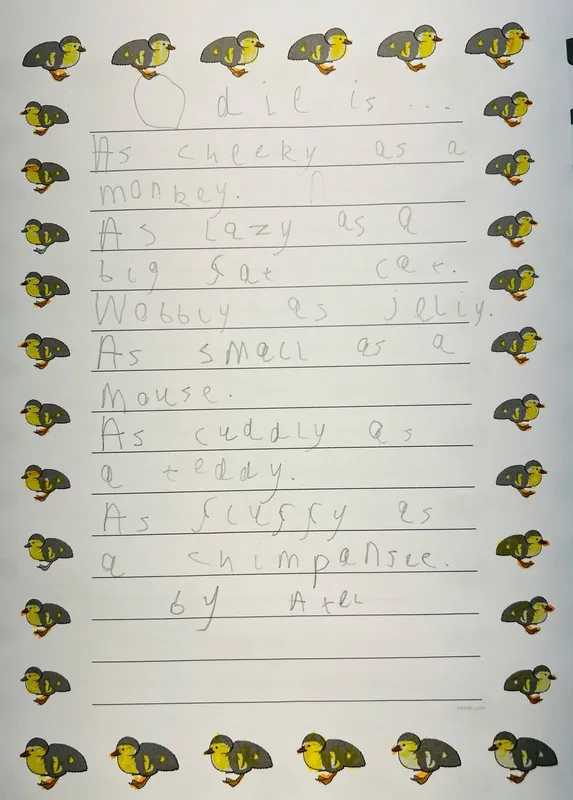 Odil is...
As cheeky as a
monkey.
As lazy as a
big fat cat.
Wobbly as jelly.
As small as a
mouse.
As cuddly as
a teddy.
As fluffy as
a chimpansee.
by Axel